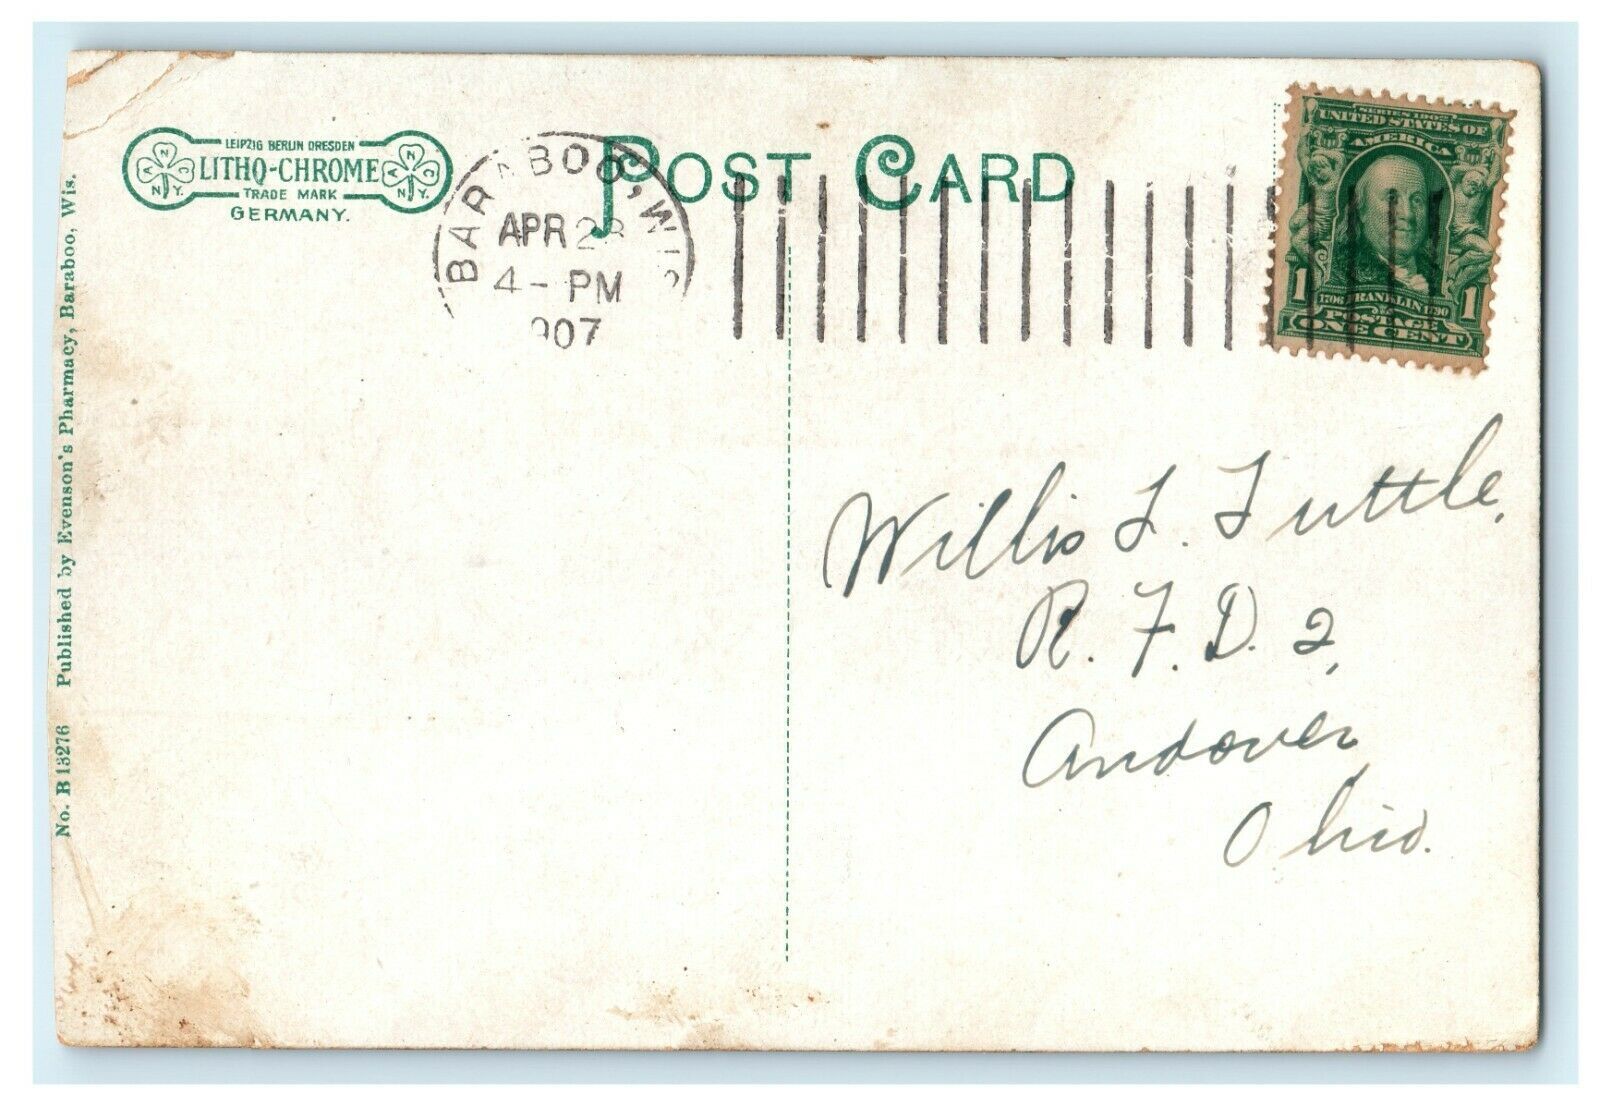 LEIPZIG BERLIN DRESDEN
LITHO-CHROME
TRADE MARK
GERMANY.
N
A C
N.Y.
N
A C
N.Y.
POST CARD
BARABOO, WIS
APR 23
4-PM
1907
SERIES 1902
UNITED STATES OF
AMERICA
1 1
1706 FRANKLIN 1790
POSTAGE
ONE CENT
No. B 13276 Published by Evenson's Pharmacy, Baraboo, Wis.
Willis L. Tuttle,
R. F. D. 2,
Andover
Ohio.